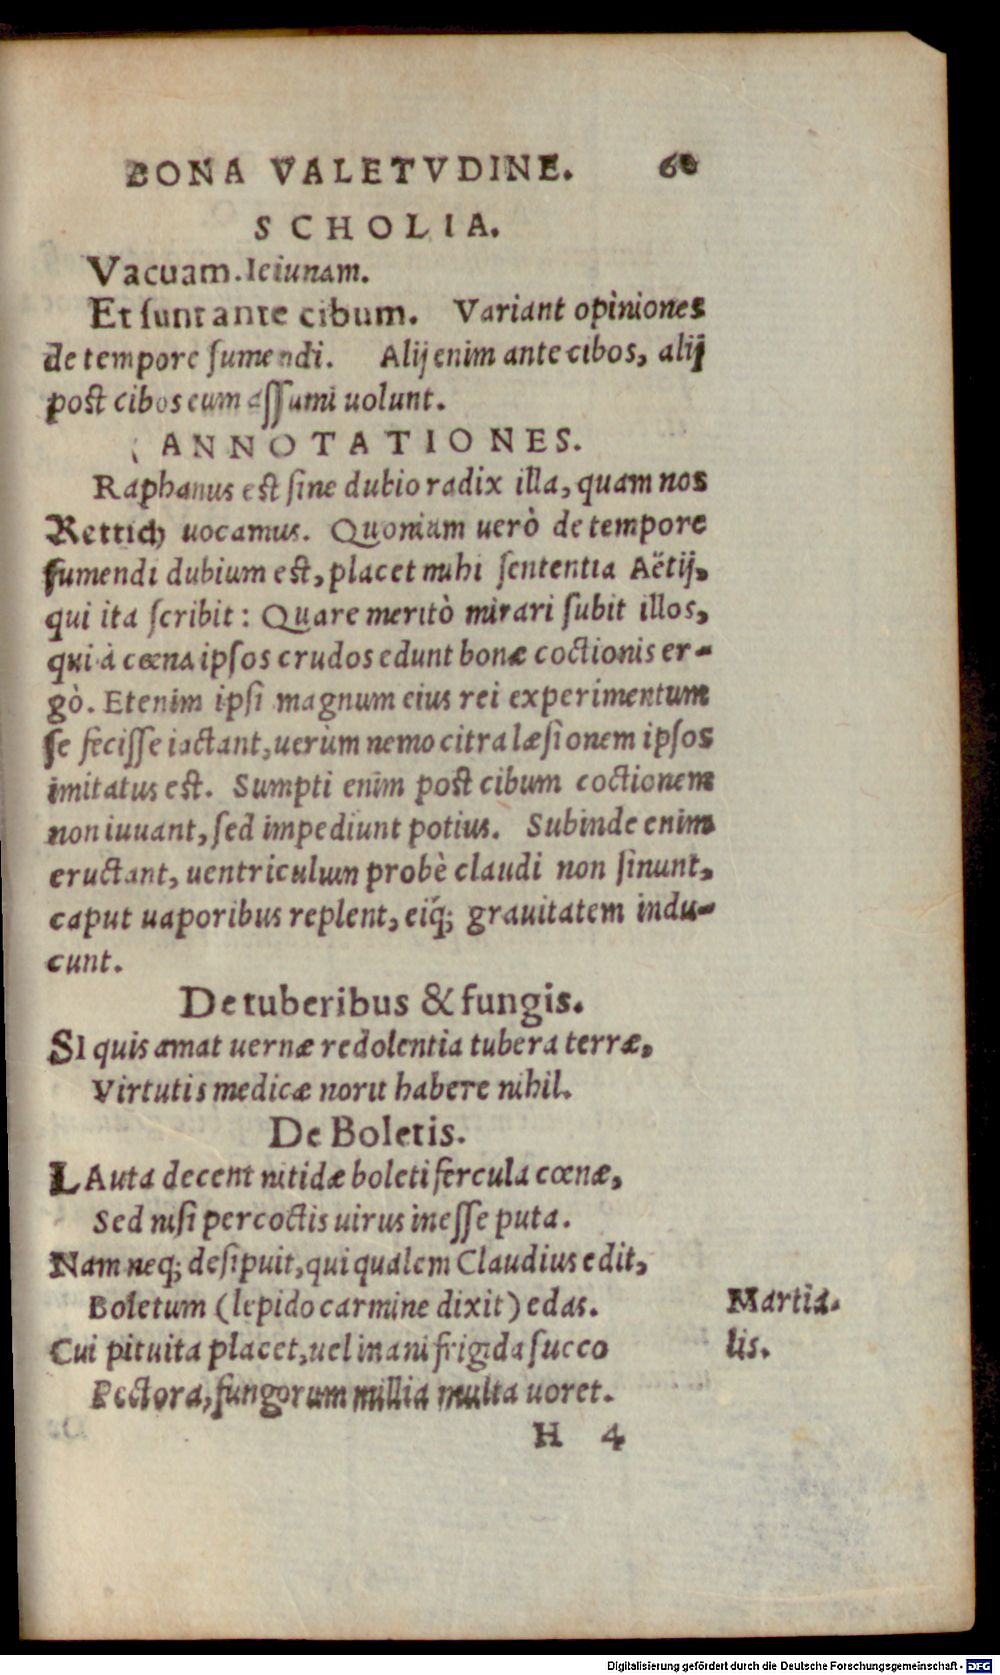 BONA VALETVDINE. 60
SCHOLIA.
Vacuam. Ieiunam.
Et sunt ante cibum. Variant opiniones
de tempore sumendi. Alij enim ante cibos, alij
post cibos eum assumi uolunt.
ANNOTATIONES.
Raphanus est sine dubio radix illa, quam nos
Rettich uocamus. Quoniam uerò de tempore
sumendi dubium est, placet mihi sententia Aëtij,
qui ita scribit: Quare meritò mirari subit illos,
qui à cœna ipsos crudos edunt bonæ coctionis er-
gò. Etenim ipsi magnum eius rei experimentum
se fecisse iactant, uerùm nemo citra læsionem ipsos
imitatus est. Sumpti enim post cibum coctionem
non iuuant, sed impediunt potius. Subinde enim
eructant, uentriculum probè claudi non sinunt,
caput uaporibus replent, eiq́; grauitatem indu-
cunt.
De tuberibus & fungis.
SI quis amat uernæ redolentia tubera terræ,
Virtutis medicæ norit habere nihil.
De Boletis.
LAuta decent nitidæ boleti fercula cœnæ,
Sed nisi percoctis uirus inesse puta.
Nam neq; desipuit, qui qualem Claudius edit,
Boletum (lepido carmine dixit) edas. Martia-
Cui pituita placet, uel inani frigida succo lis.
Pectora, fungorum millia multa uoret.
H 4
Digitalisierung gefördert durch die Deutsche Forschungsgemeinschaft - DFG